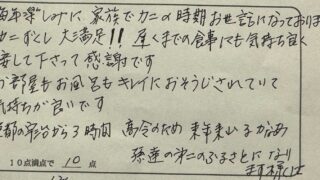 毎年楽しみに 家族でカニの時期お世話になっております
カニづくし 大満足!! 遅くまでの食事にも気持ち良く
接して下さって感謝です
お部屋もお風呂もキレイにおそうじされていて
気持ちが良いです
から3時間 高令のため 来年
孫達の第二のふるさとになり
10点満点で 10 点